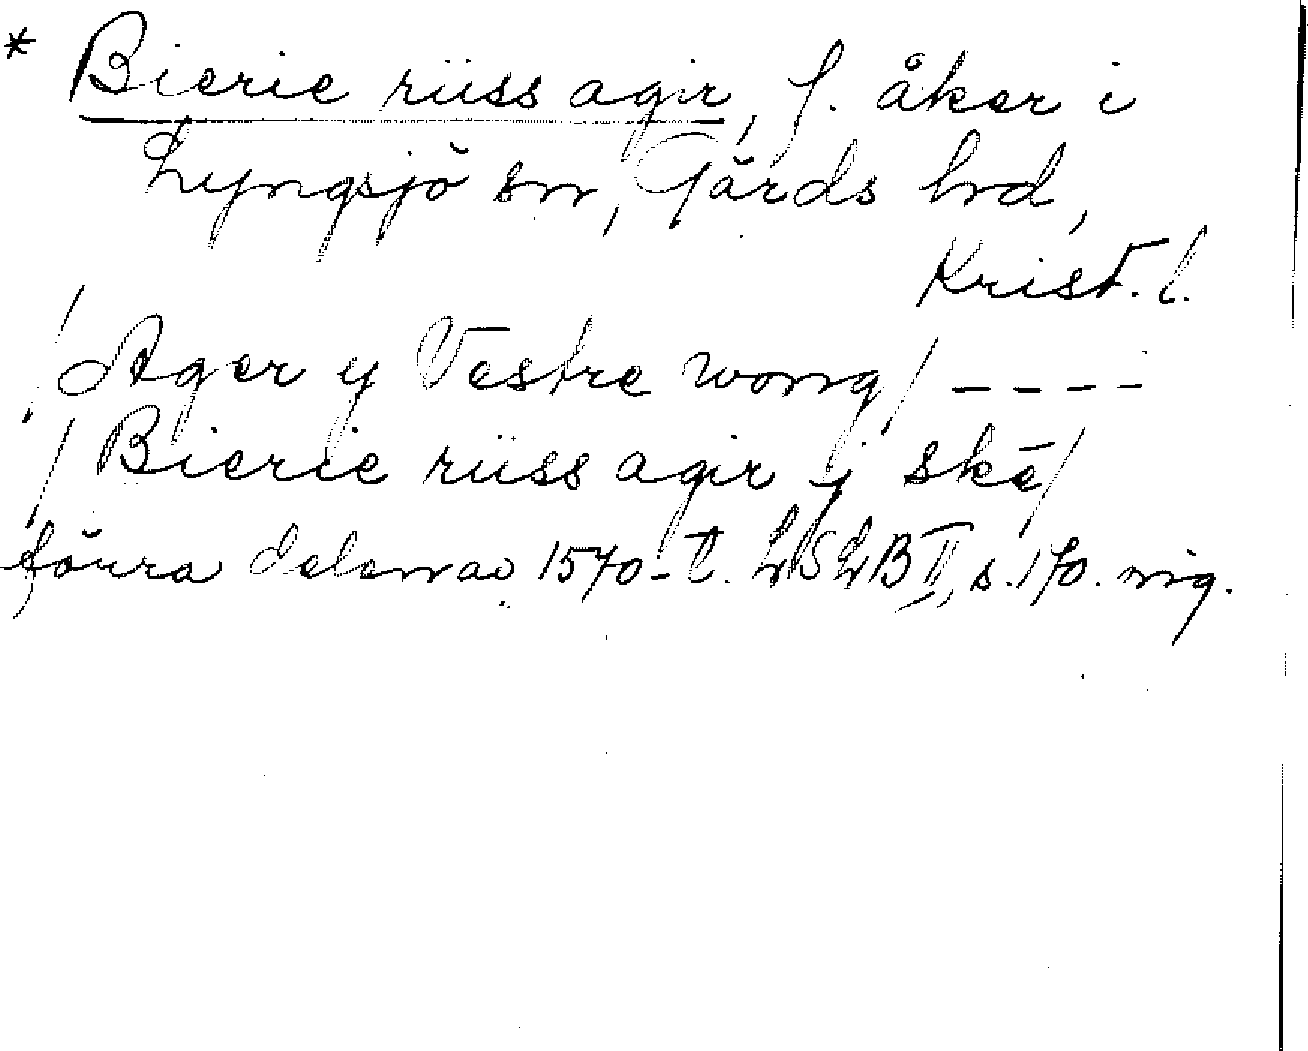 * Bierie rüss agir, f. åker i
Lyngsjö sn, Gärds hd,
Krist. l.
/ Ager y Vestre wong / ----
/ Bierie rüss agir y ske /
förra delen av 1570-t. LSLB II, s. 170. mg.